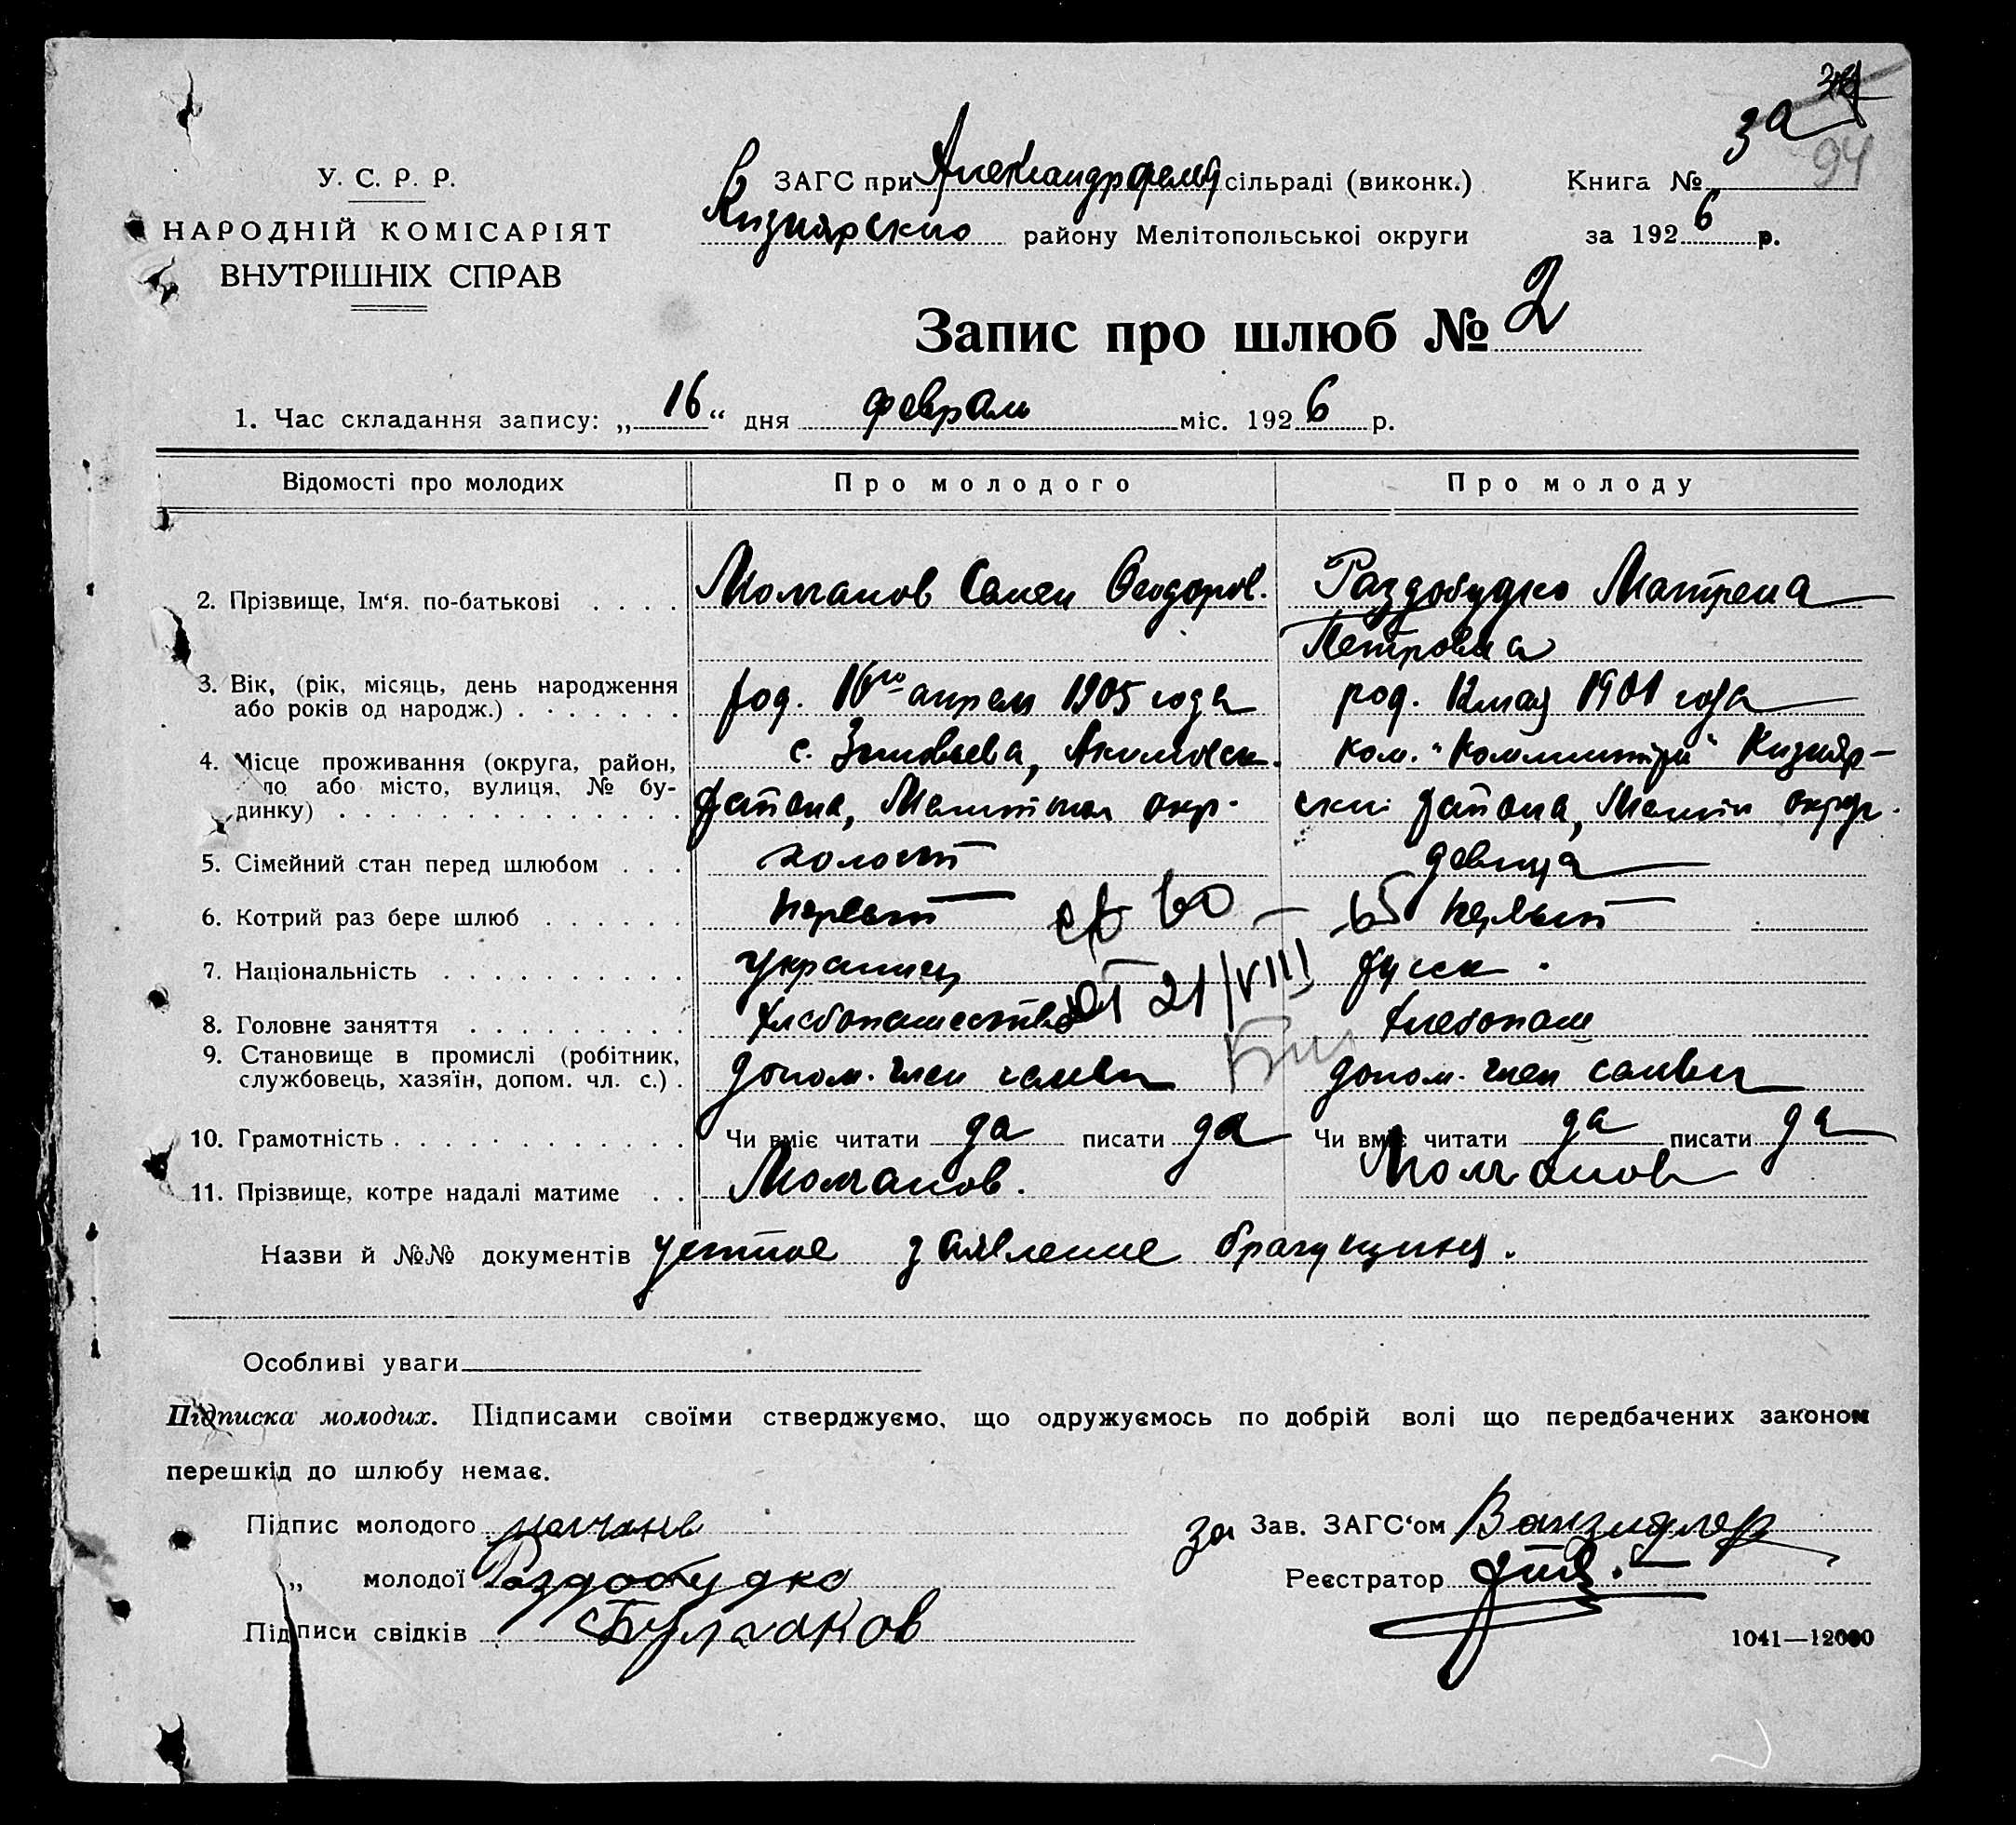 У. С. Р. Р.
НАРОДНІЙ КОМІСАРІЯТ
ВНУТРІШНІХ СПРАВ
В ЗАГС при Александрфельд сільраді (виконк.)
Кизиярского району Мелітопольської округи
за
Книга № 94
за 1926 р.
Запис про шлюб № 2
1. Час складання запису: „16“ дня февраля міс. 1926 р.
Відомості про молодих Про молодого Про молоду
2. Прізвище, Ім‘я. по-батькові Молчанов Семен Феодоров. Раздобудко Матрена
Петровна
3. Вік, (рік, місяць, день народження
або років од народж.) род. 16го апреля 1905 года род. 12 мая 1901 года
4. Місце проживання (округа, район, с. Зиновьева, Акимовск. ком. "Коммунтруд" Кизияр-
ло або місто, вулиця, № бу-
динку) района, Мелитопол окр. ски района, Мелит округ.
5. Сімейний стан перед шлюбом холост девица
6. Котрий раз бере шлюб первый первый
7. Національність украинец русск.
от 21/VIII
8. Головне заняття хлебопашество хлебопаш
9. Становище в промислі (робітник,
службовець, хазяїн, допом. чл. с.) допом. член семьи допом. член семьи
10. Грамотність Чи вміє читати да писати да Чи вміє читати да писати да
11. Прізвище, котре надалі матиме Молчанов. Молчанов
Назви й №№ документів устное заявление брачующихся.
Особливі уваги
Підписка молодих. Підписами своїми стверджуємо, що одружуємось по добрій волі що передбачених законом
перешкід до шлюбу немає.
Підпис молодого молчанв
за Зав. ЗАГС‘ом
„ молодої Раздобудко
Реєстратор
Підписи свідків Булгаков
1041—12000